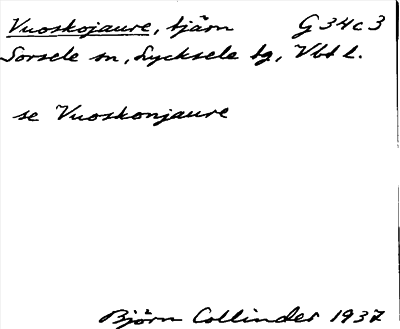 Vuoskojaure, tjärn G 34c3
Sorsele sn, Lycksele tg, Vbt l.
se Vuoskonjaure
Björn Collinder 1937